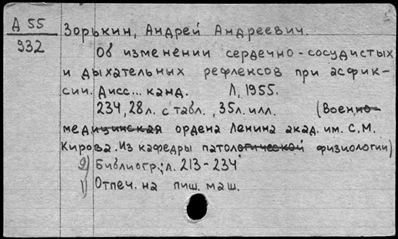 А 55
932
Зорькин, Андрей Андреевич.
Об изменении сердечно-сосудистых
и дыхательных рефлексов при асфик-
сии. Дисс... канд. Л, 1955.
234, 28л. с табл., 35л. илл. (Военно-
медицинская ордена Ленина акад. им. С.М.
Кирова. Из кафедры патологической физиологии)
2) Библиогр: л. 213-234
1) Отпеч. на пиш. маш.